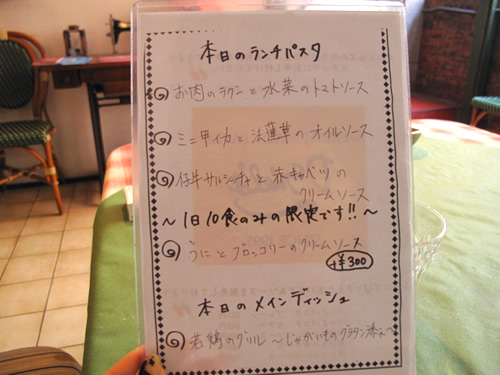 本日のランチパスタ
お肉のラグーと水菜のトマトソース
ミニ甲イカと法蓮草のオイルソース
仔牛サルシーチャと赤キャベツの
クリームソース
〜1日10食のみの限定です!!〜
うにとブロッコリーのクリームソース
+¥300
本日のメインディッシュ
若鶏のグリル〜じゃがいものグラタン添え〜